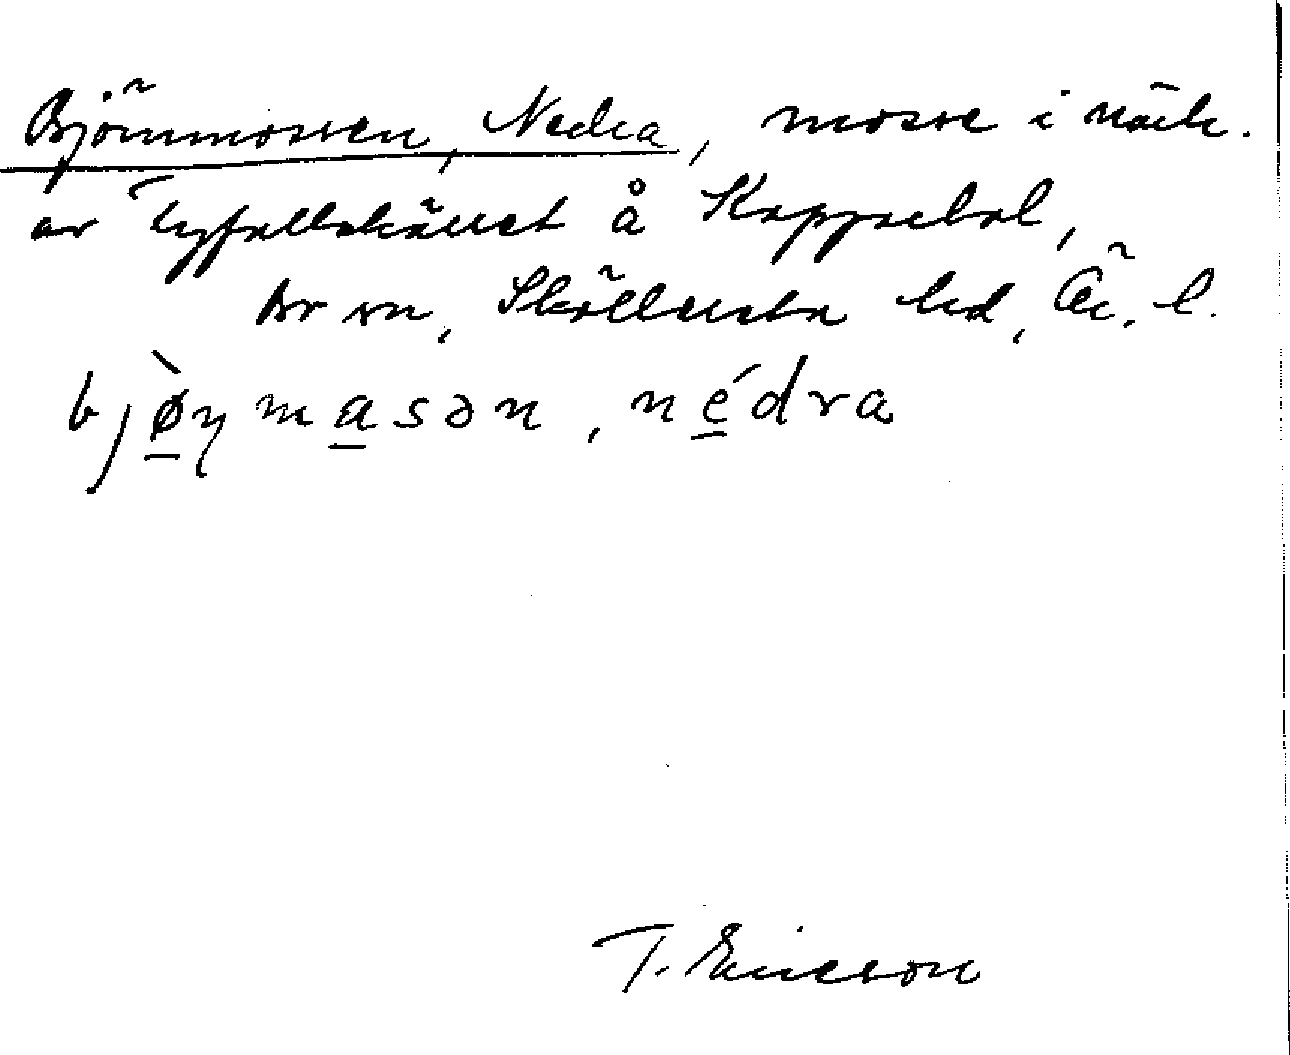 Björnmossen, Nedra, mosse i närh.
av Tyfallskärret å Kappsebol,
sv om, Sköllersta hd, Ör. l.
bjø̀ŋmasən, nédra
T. Ericson